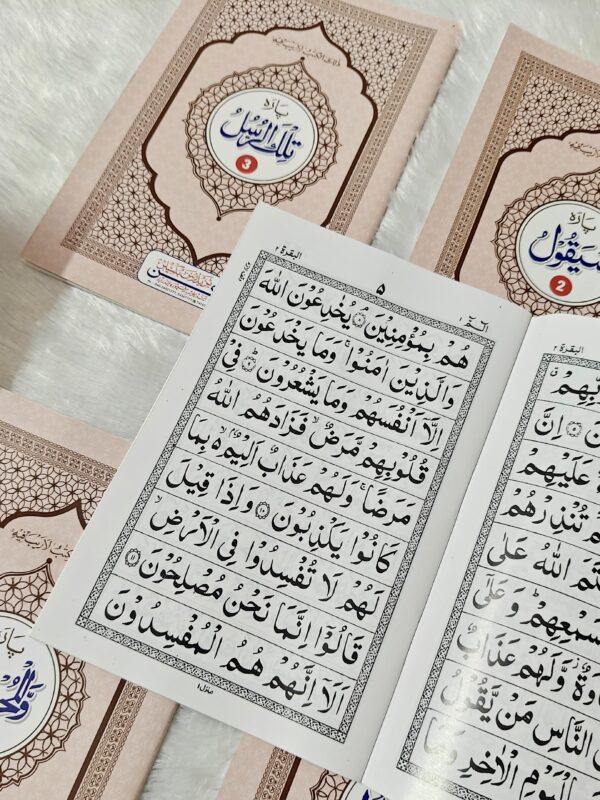 ذٰلِكَ الْكِتٰبُ لَا رَيْبَ فِيْهِ
پارہ
تِلْكَ الرُّسُلُ
3
پارہ
سَيَقُوْلُ
2
البقرة ٢
٥
الٓمّٓ ١
هُمْ بِمُؤْمِنِيْنَ ۝٨ يُخٰدِعُوْنَ اللّٰهَ
وَالَّذِيْنَ اٰمَنُوْا ۚ وَمَا يَخْدَعُوْنَ
اِلَّآ اَنْفُسَهُمْ وَمَا يَشْعُرُوْنَ ۝٩ فِيْ
قُلُوْبِهِمْ مَّرَضٌ ۙ فَزَادَهُمُ اللّٰهُ
مَرَضًا ۚ وَلَهُمْ عَذَابٌ اَلِيْمٌۢ ۙ بِمَا
كَانُوْا يَكْذِبُوْنَ ۝١٠ وَاِذَا قِيْلَ
لَهُمْ لَا تُفْسِدُوْا فِي الْاَرْضِ ۙ
قَالُوْٓا اِنَّمَا نَحْنُ مُصْلِحُوْنَ ۝١١
اَلَآ اِنَّهُمْ هُمُ الْمُفْسِدُوْنَ
منزل ١
البقرة ٢
اِنَّ
عَلَيْهِمْ
تُنْذِرْهُمْ
اللّٰهُ عَلٰى
سَمْعِهِمْ ؕ وَعَلٰٓى
وَّلَهُمْ عَذَابٌ
النَّاسِ مَنْ يَّقُوْلُ
الْيَوْمِ الْاٰخِرِ وَمَا
پارہ